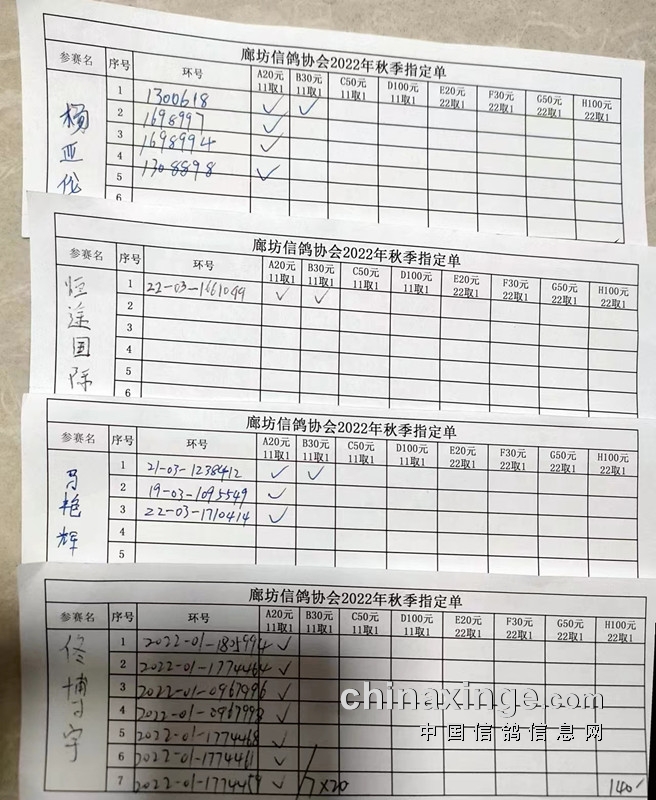 廊坊信鸽协会2022年秋季指定单
参赛名 序号 环号 A20元 11取1 B30元 11取1 C50元 11取1 D100元 11取1 E20元 22取1 F30元 22取1 G50元 22取1 H100元 22取1
杨亚伦
1 1300618 ✓ ✓
2 1698997 ✓
3 1698994 ✓
4 1308898
5 ✓
6
廊坊信鸽协会2022年秋季指定单
参赛名 序号 环号 A20元 11取1 B30元 11取1 C50元 11取1 D100元 11取1 E20元 22取1 F30元 22取1 G50元 22取1 H100元 22取1
恒途国际
1 22-03-1661049 ✓ ✓
2
3
4
5
6
廊坊信鸽协会2022年秋季指定单
参赛名 序号 环号 A20元 11取1 B30元 11取1 C50元 11取1 D100元 11取1 E20元 22取1 F30元 22取1 G50元 22取1 H100元 22取1
马艳辉
1 21-03-1238412 ✓ ✓
2 19-03-1095549 ✓
3 22-03-1710414 ✓
4
5
廊坊信鸽协会2022年秋季指定单
参赛名 序号 环号 A20元 11取1 B30元 11取1 C50元 11取1 D100元 11取1 E20元 22取1 F30元 22取1 G50元 22取1 H100元 22取1
佟博宇
1 2022-01-1805994 ✓
2 2022-01-1774464 ✓
3 2022-01-0967996 ✓
4 2022-01-0967998 ✓
5 2022-01-1774468 ✓
6 2022-01-1774461 ✓
7 2022-01-1774459 ✓ 7×20 140
chinaxinge.com
中国信鸽信息网